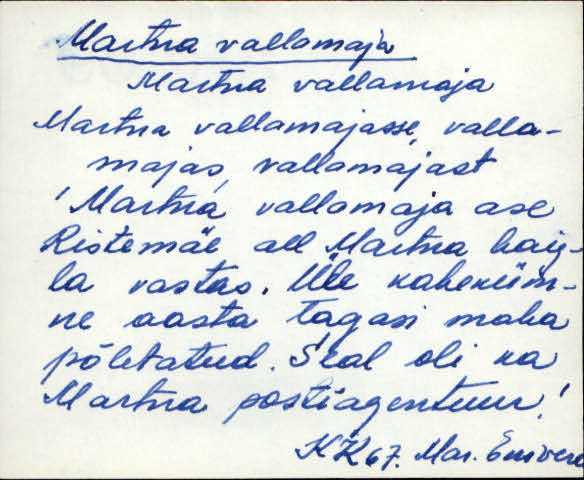 Martna vallamaja
Martna vallamaja
Martna vallamajasse, valla-
majas, vallamajast
'Martna vallamaja ase
Ristemäe all Martna haig-
la vastas. Üle kaheküm-
ne aasta tagasi maha
põletatud. Seal oli ka
Martna postiagentuur.'
KK 67. Mar. Envere